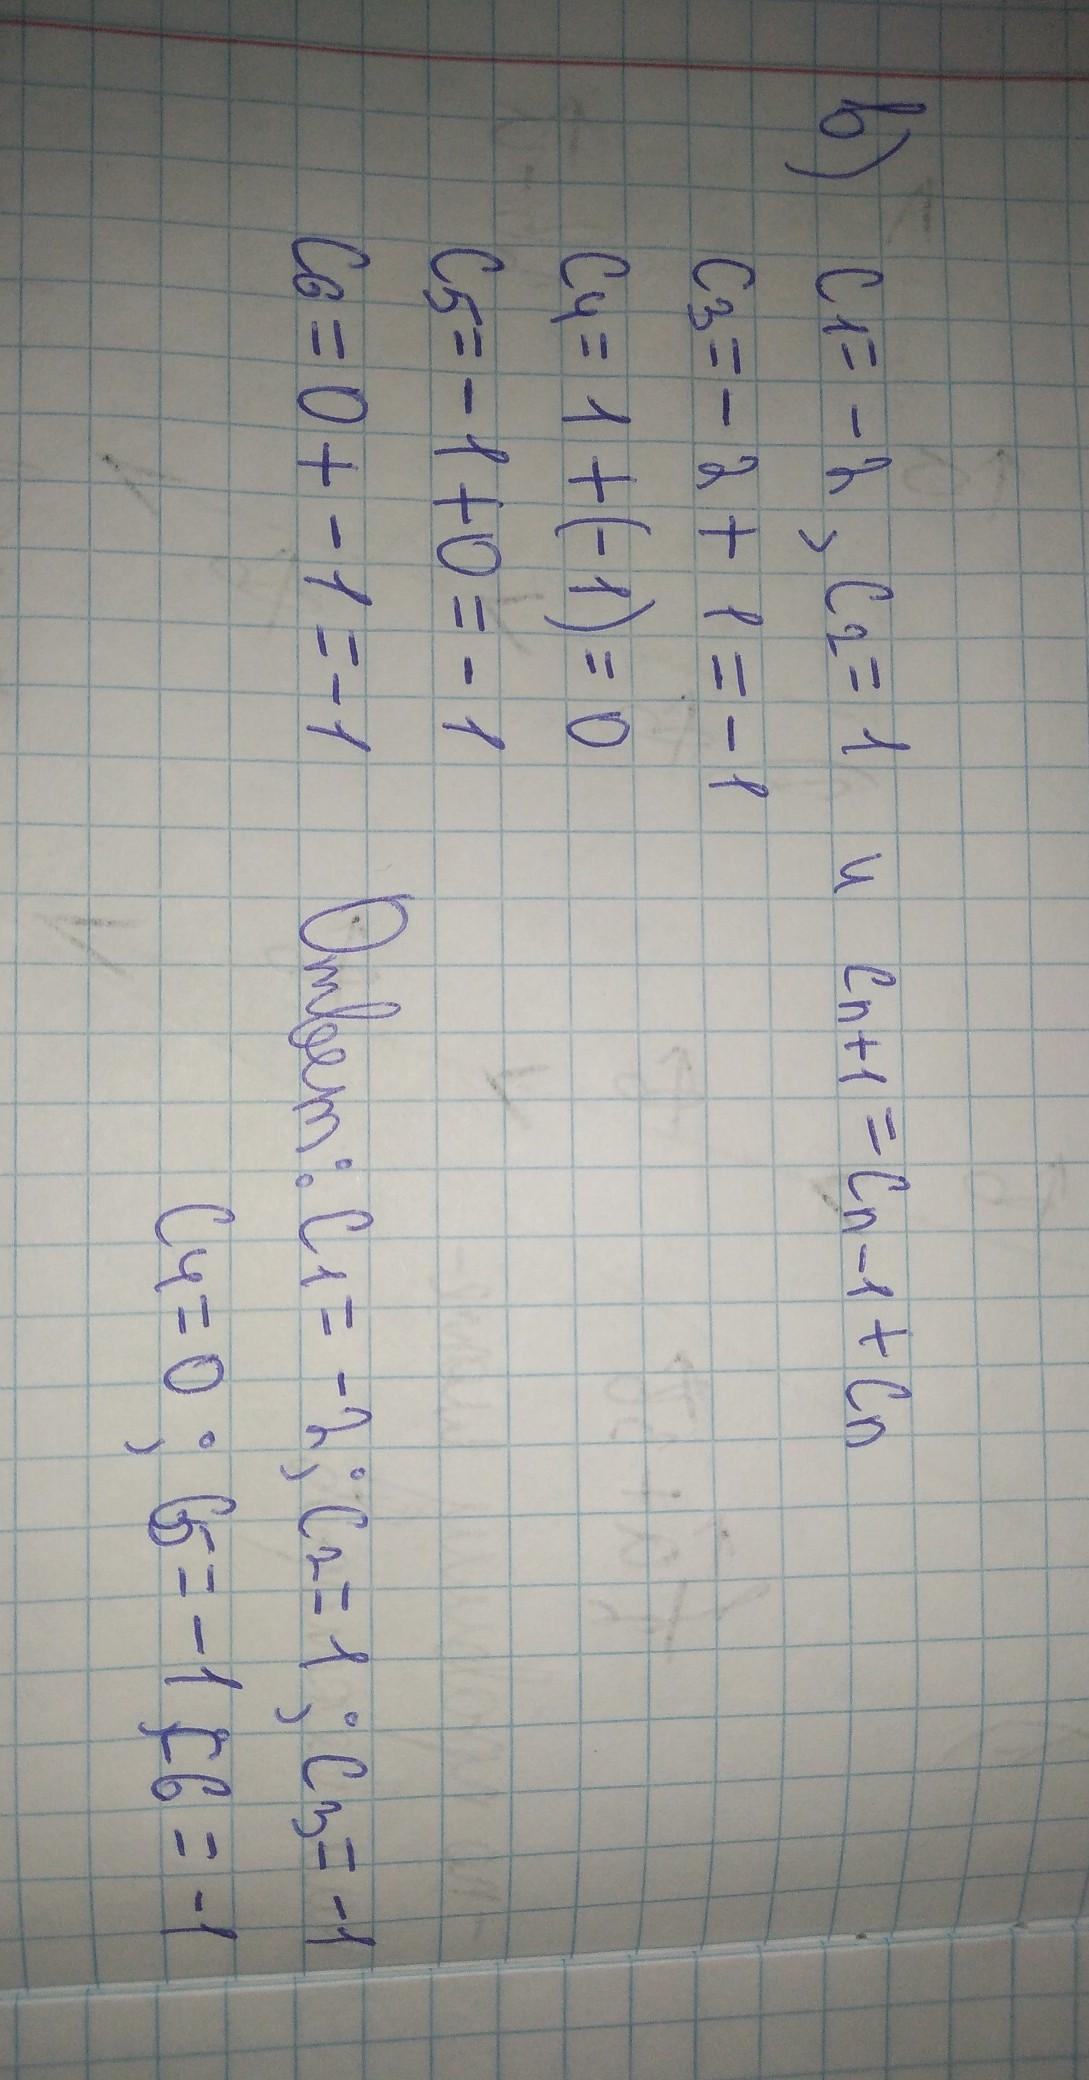 в) C1=-2, C2=1 и Cn+1=Cn-1+Cn
C3=-2+1=-1
C4=1+(-1)=0
C5=-1+0=-1
C6=0+-1=-1
Ответ: C1=-2; C2=1; C3=-1
C4=0; C5=-1; C6=-1